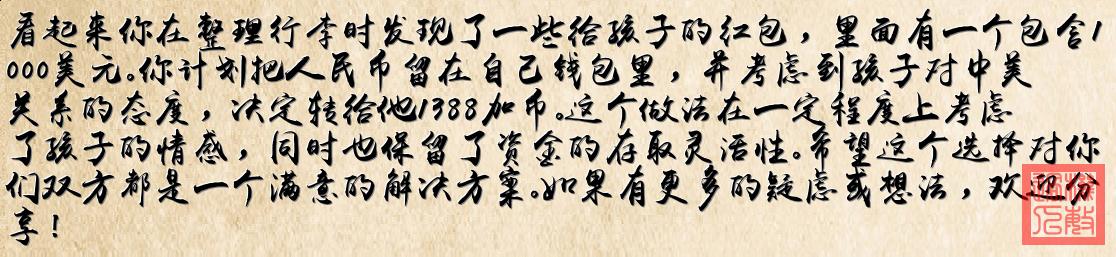 看起来你在整理行李时发现了一些给孩子的红包，里面有一个包含1
000美元。你计划把人民币留在自己钱包里，并考虑到孩子对中美
关系的态度，决定转给他1388加币。这个做法在一定程度上考虑
了孩子的情感，同时也保留了资金的存取灵活性。希望这个选择对你
们双方都是一个满意的解决方案。如果有更多的疑虑或想法，欢迎分
享！